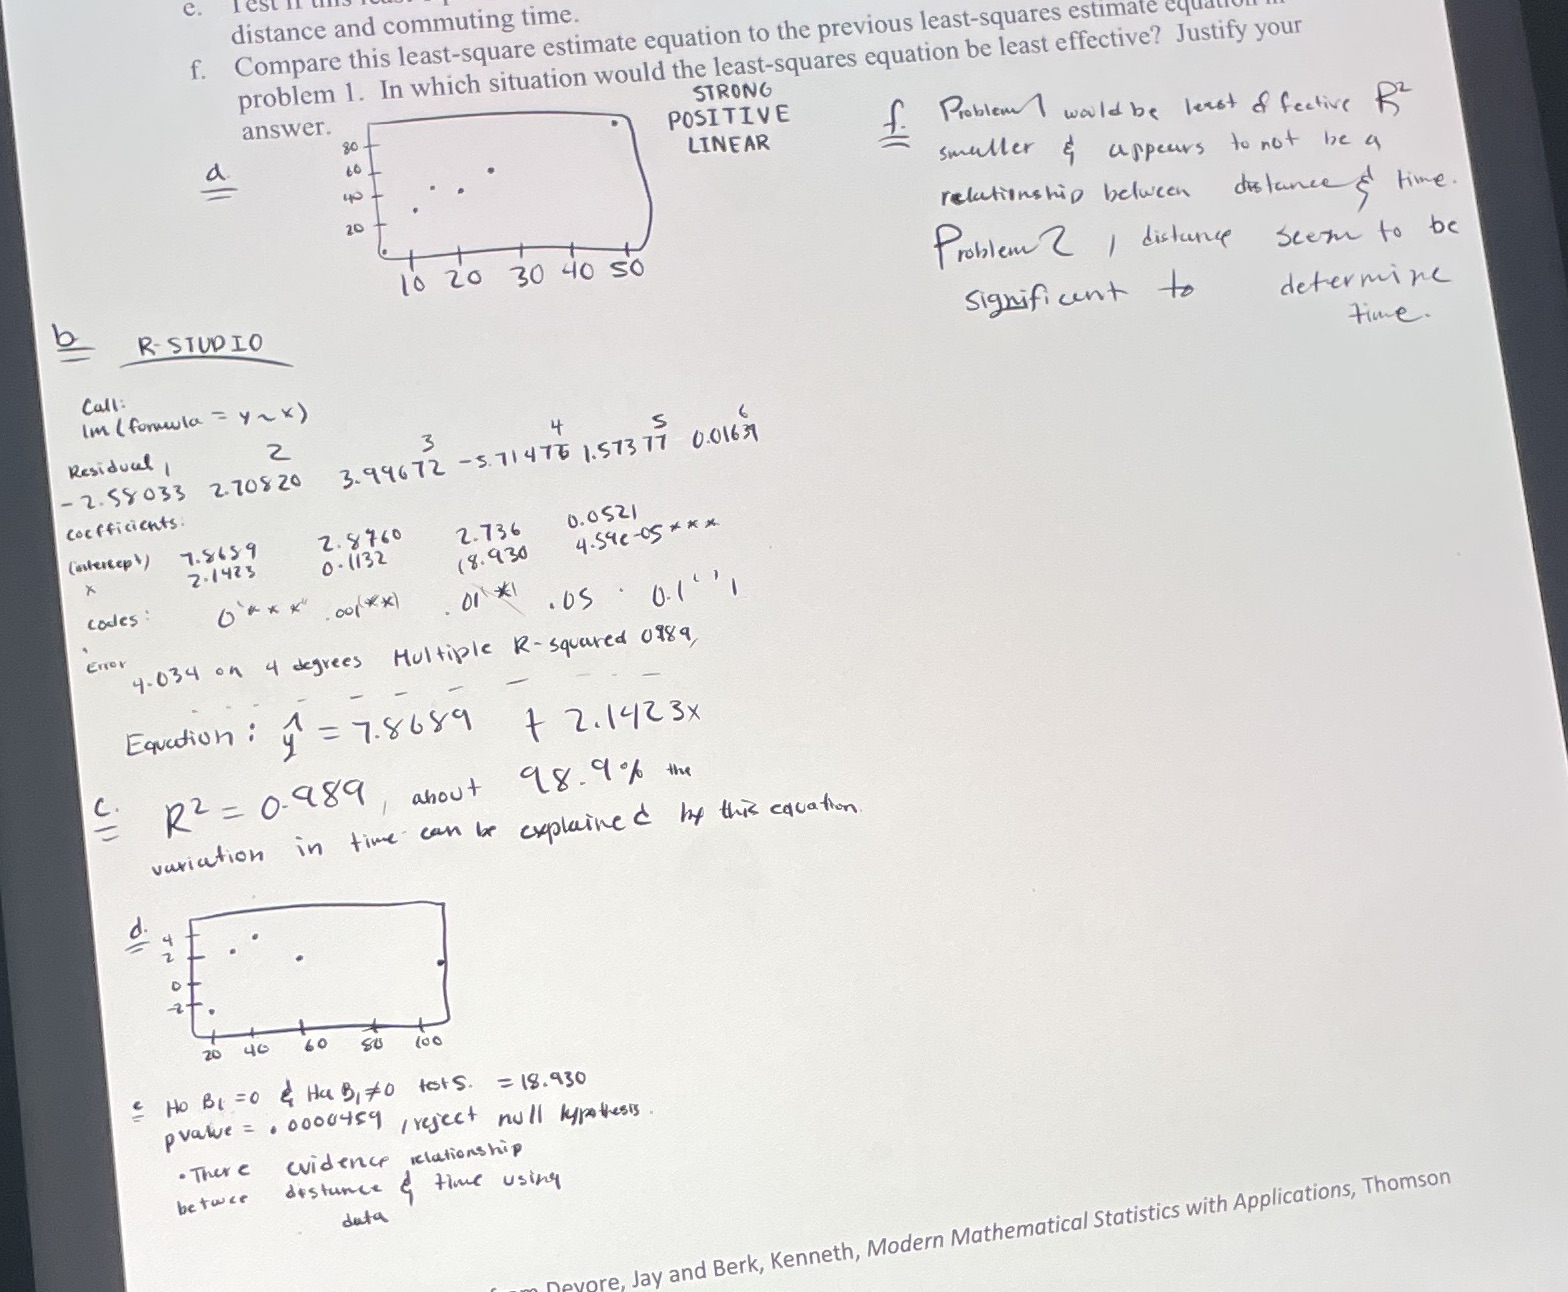 e. Test if this
distance and commuting time.
f. Compare this least-square estimate equation to the previous least-squares estimate equation in
problem 1. In which situation would the least-squares equation be least effective? Justify your
answer.
STRONG
POSITIVE
LINEAR
a.
80
60
40
20
10 20 30 40 50
f. Problem 1 would be least effective R²
smaller & appears to not be a
relationship between distance & time.
Problem 2, distance seem to be
significant to determine
time.
b R-STUDIO
Call:
lm(formula = y ~ x)
Residual 1 2 3 4 5 6
-2.58033 2.70820 3.99672 -5.71475 1.57377 0.01639
coefficients:
(intercept) 7.8689 2.8760 2.736 0.0521
x 2.1423 0.1132 18.930 4.59e-05 ***
codes: 0 '***' .001(**) .01 '*' .05 . 0.1 ' ' 1
Error
4.034 on 4 degrees Multiple R-squared 0989,
Equation: ŷ = 7.8689 + 2.1423x
c. R² = 0.989, about 98.9% the
variation in time can be explained by this equation.
d.
4
2
0
-2
20 40 60 80 100
e Ho B1 = 0 & Ha B1 ≠ 0 test s. = 18.930
pvalue = .0000459, reject null hypothesis.
• There evidence relationship
betwee distance & time using
data
Devore, Jay and Berk, Kenneth, Modern Mathematical Statistics with Applications, Thomson